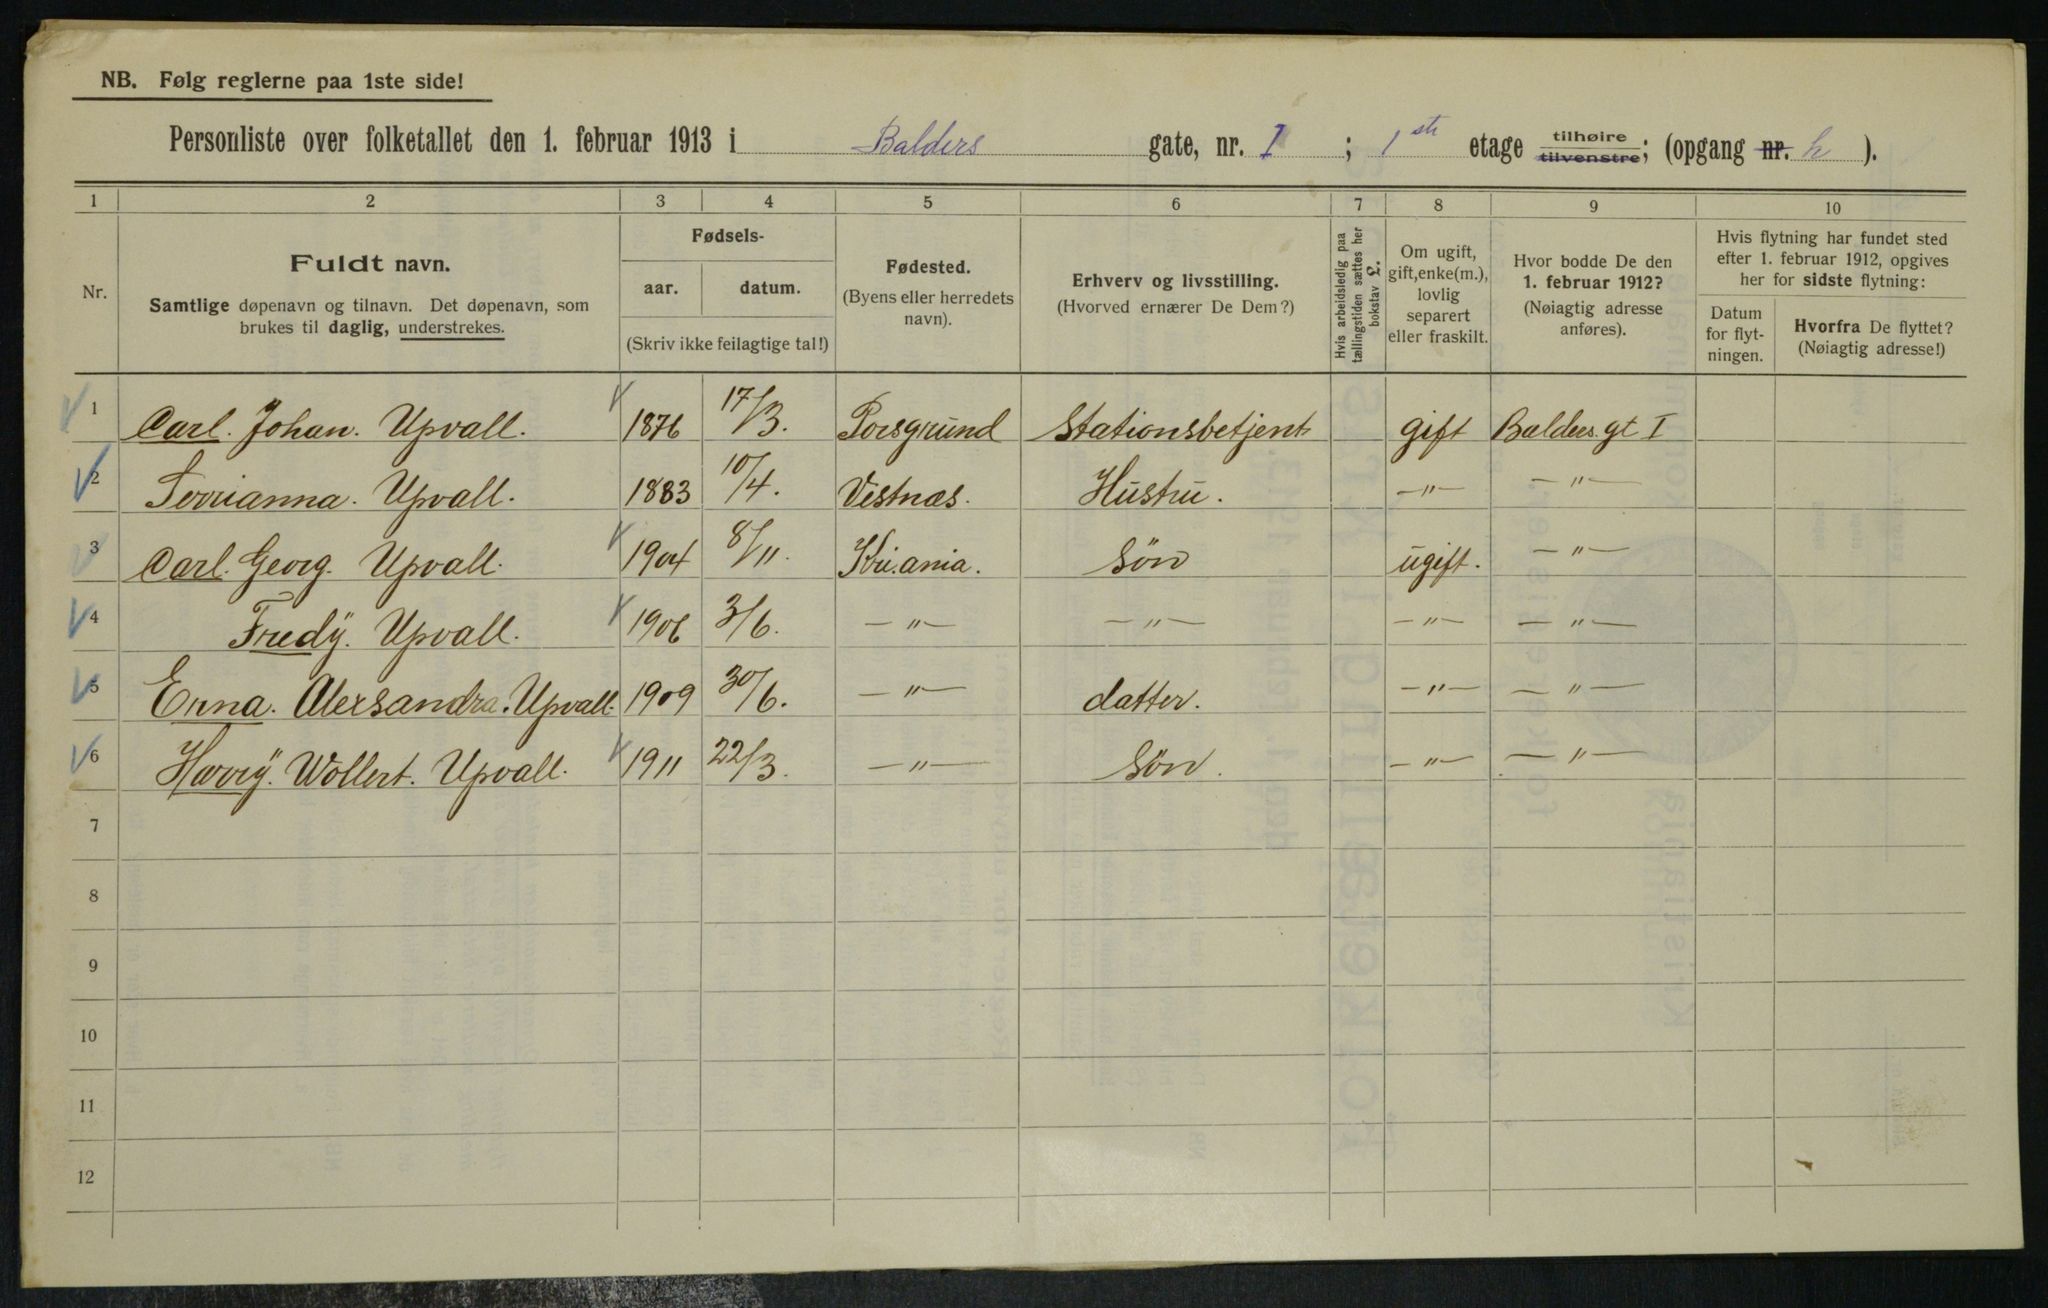 NB. Følg reglerne paa 1ste side!
Personliste over folketallet den 1. februar 1913 i Balders gate, nr. I ; 1 ste etage tilhøire tilvenstre; (opgang nr. h ).
1 2 3 4 5 6 7 8 9 10
Nr.
Fuldt navn.
Samtlige døpenavn og tilnavn. Det døpenavn, som
brukes til daglig, understrekes.
Fødsels-
aar. datum.
(Skriv ikke feilagtige tal!)
Fødested.
(Byens eller herredets
navn).
Erhverv og livsstilling.
(Hvorved ernærer De Dem?)
Hvis arbeidsledig paa
tællingstiden sættes her
bokstav L.
Om ugift,
gift, enke(m.),
lovlig
separert
eller fraskilt.
Hvor bodde De den
1. februar 1912?
(Nøiagtig adresse
anføres).
Hvis flytning har fundet sted
efter 1. februar 1912, opgives
her for sidste flytning:
Datum
for flyt-
ningen.
Hvorfra De flyttet?
(Nøiagtig adresse!)
1 Carl. Johan. Upvall. 1876 17/3. Porsgrund Stationsbetjent gift Balders gt I
2 Upvall. 1883 10/4. Vestnæs. Hustru. —"— —"—
3 Carl. Georg. Upvall. 1904 8/11. Kri.ania. Søn ugift. —"—
4 Fredÿ. Upvall. 1906 3/6. —"— —"— —"— —"—
5 Erna. Alexsandra. Upvall. 1909 30/6. —"— datter. —"— —"—
6 Harrÿ. Wollert. Upvall. 1911 22/3. —"— Søn. —"— —"—
7
8
9
10
11
12